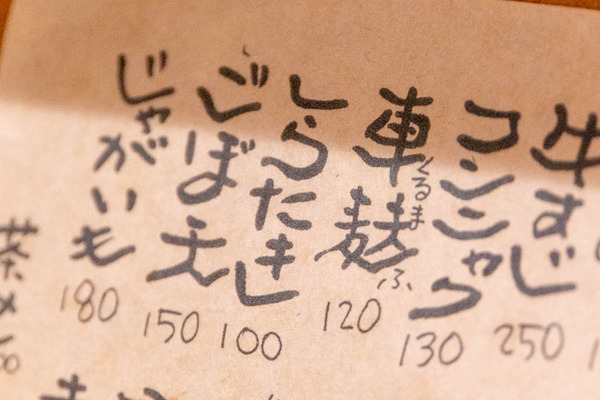 牛すじ
250
コンニャク
130
車麩
くるま
ふ
120
しらたき
100
ごぼ天
150
じゃがいも
180
茶メシ